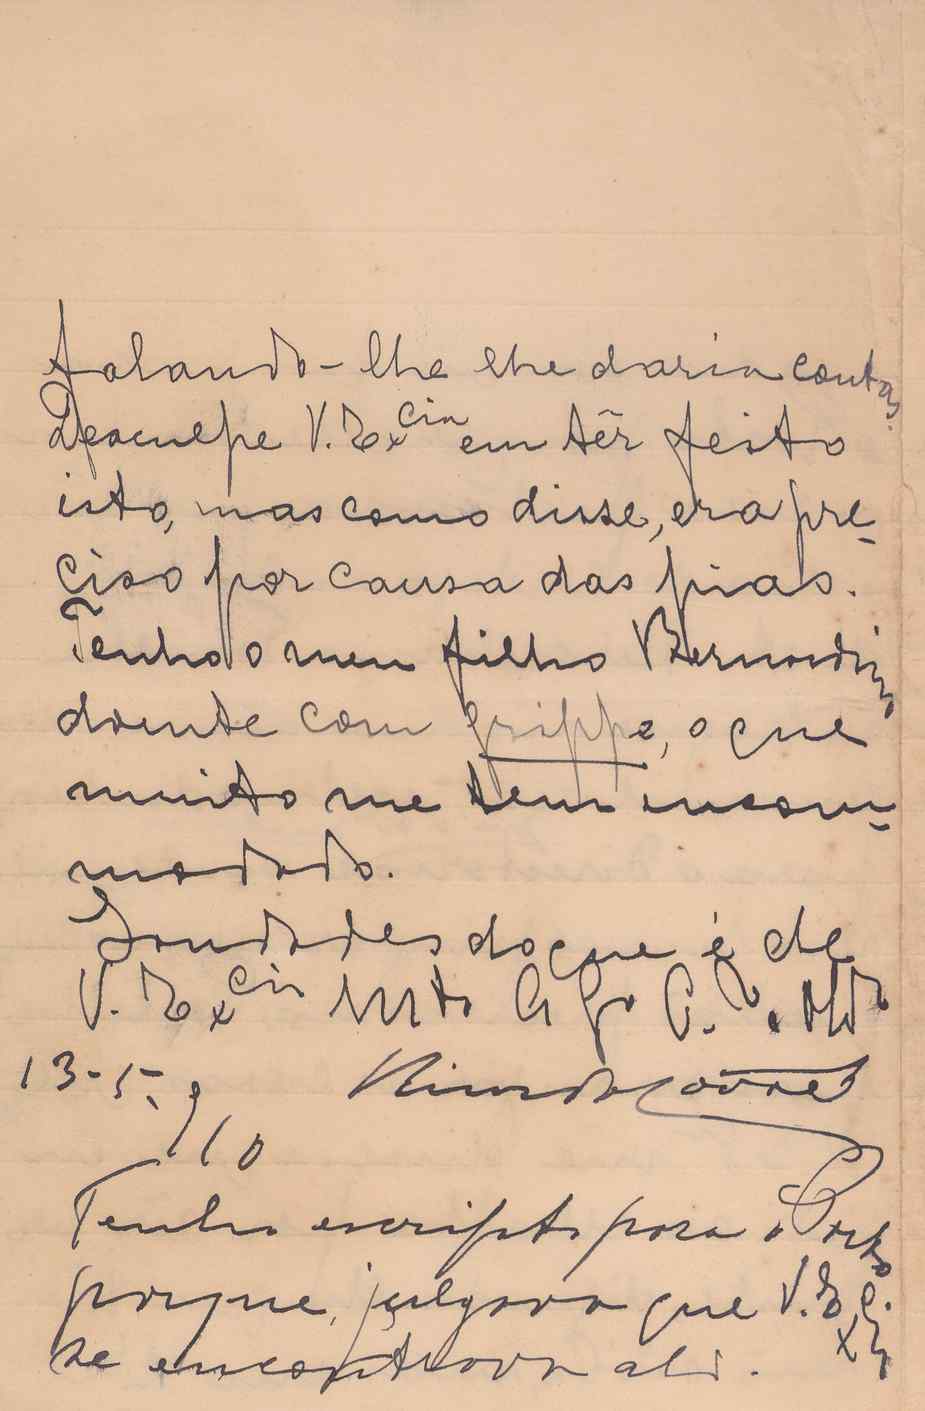 falando-lhe lhe daria contas.
Desculpe V. Excia em têr feito
isto, mas como disse, era pre-
ciso por causa das pias.
Tenho o meu filho Bernardino
doente com grippe, o que
muito me tem incom-
modado.
Saudades do que é de
V. Excia Mto Amo C.
13-5-910
Tenho escripto para o Porto
porque julgava que V. Excia
se encontrava ali.